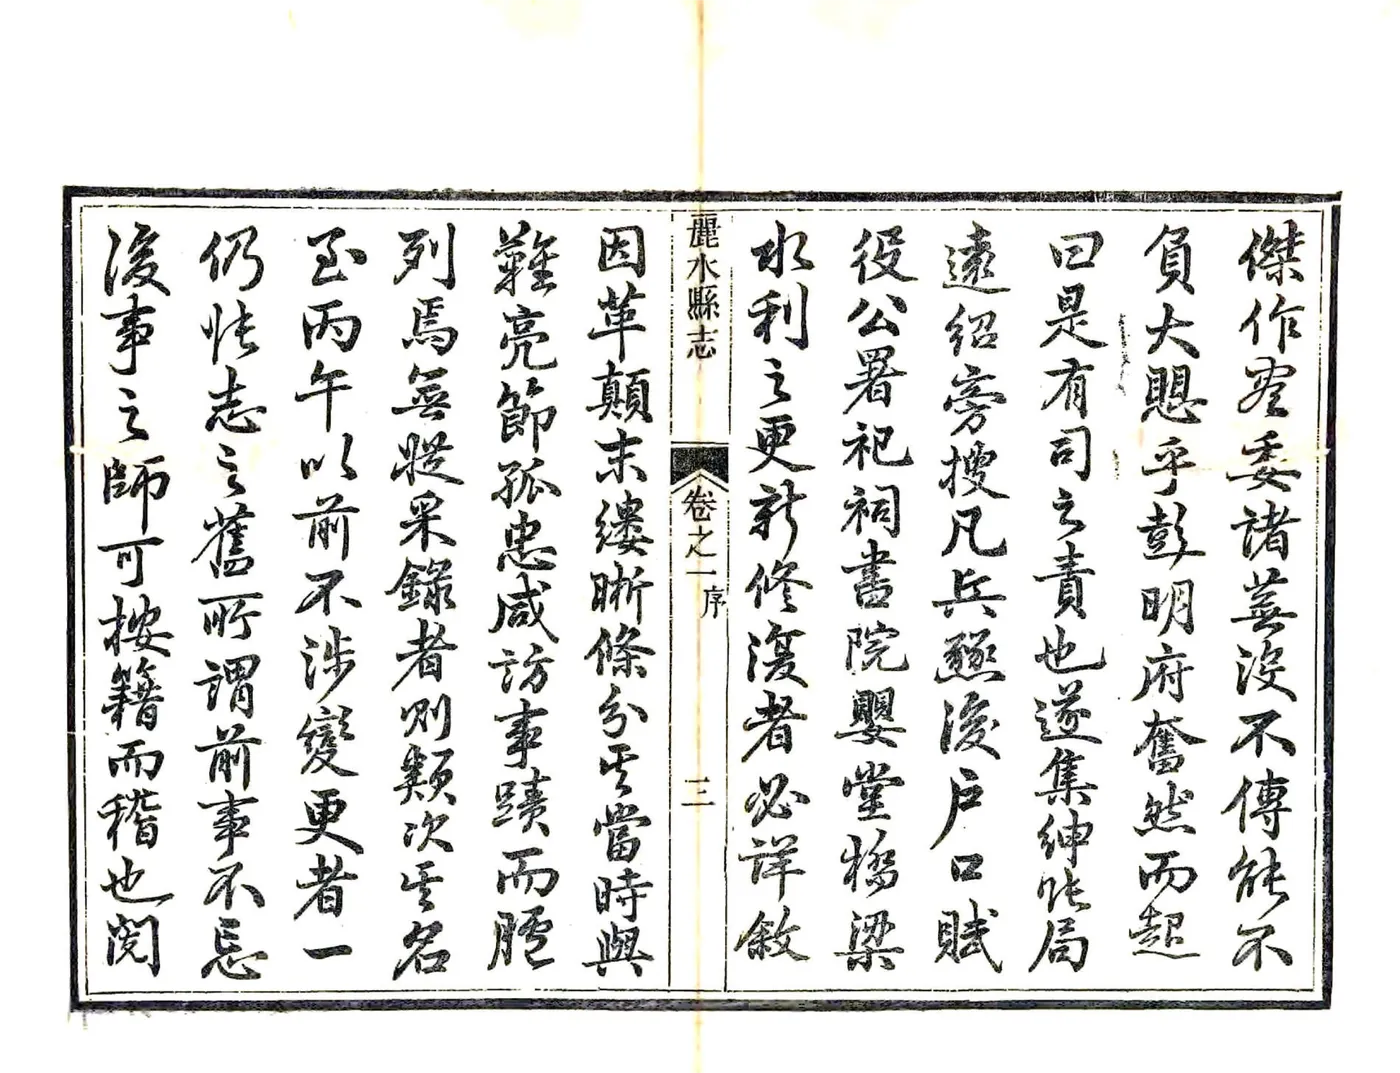 傑作盡委諸蕪沒不傳能不
負大愳乎彭明府奮然而起
曰是有司之責也遂集紳局
遠紹旁搜凡兵燹後戶口賦
役公署祀祠書院嬰堂橋梁
水利之更新修復者必詳敘
麗水縣志
卷之一 序
三
因革顛末縷晰條分其當時與
難亮節孤忠咸訪事蹟而臚
列焉無從采錄者則類次其名
至丙午以前不涉變更者一
仍志之舊所謂前事不忘
後事之師可按籍而稽也閱